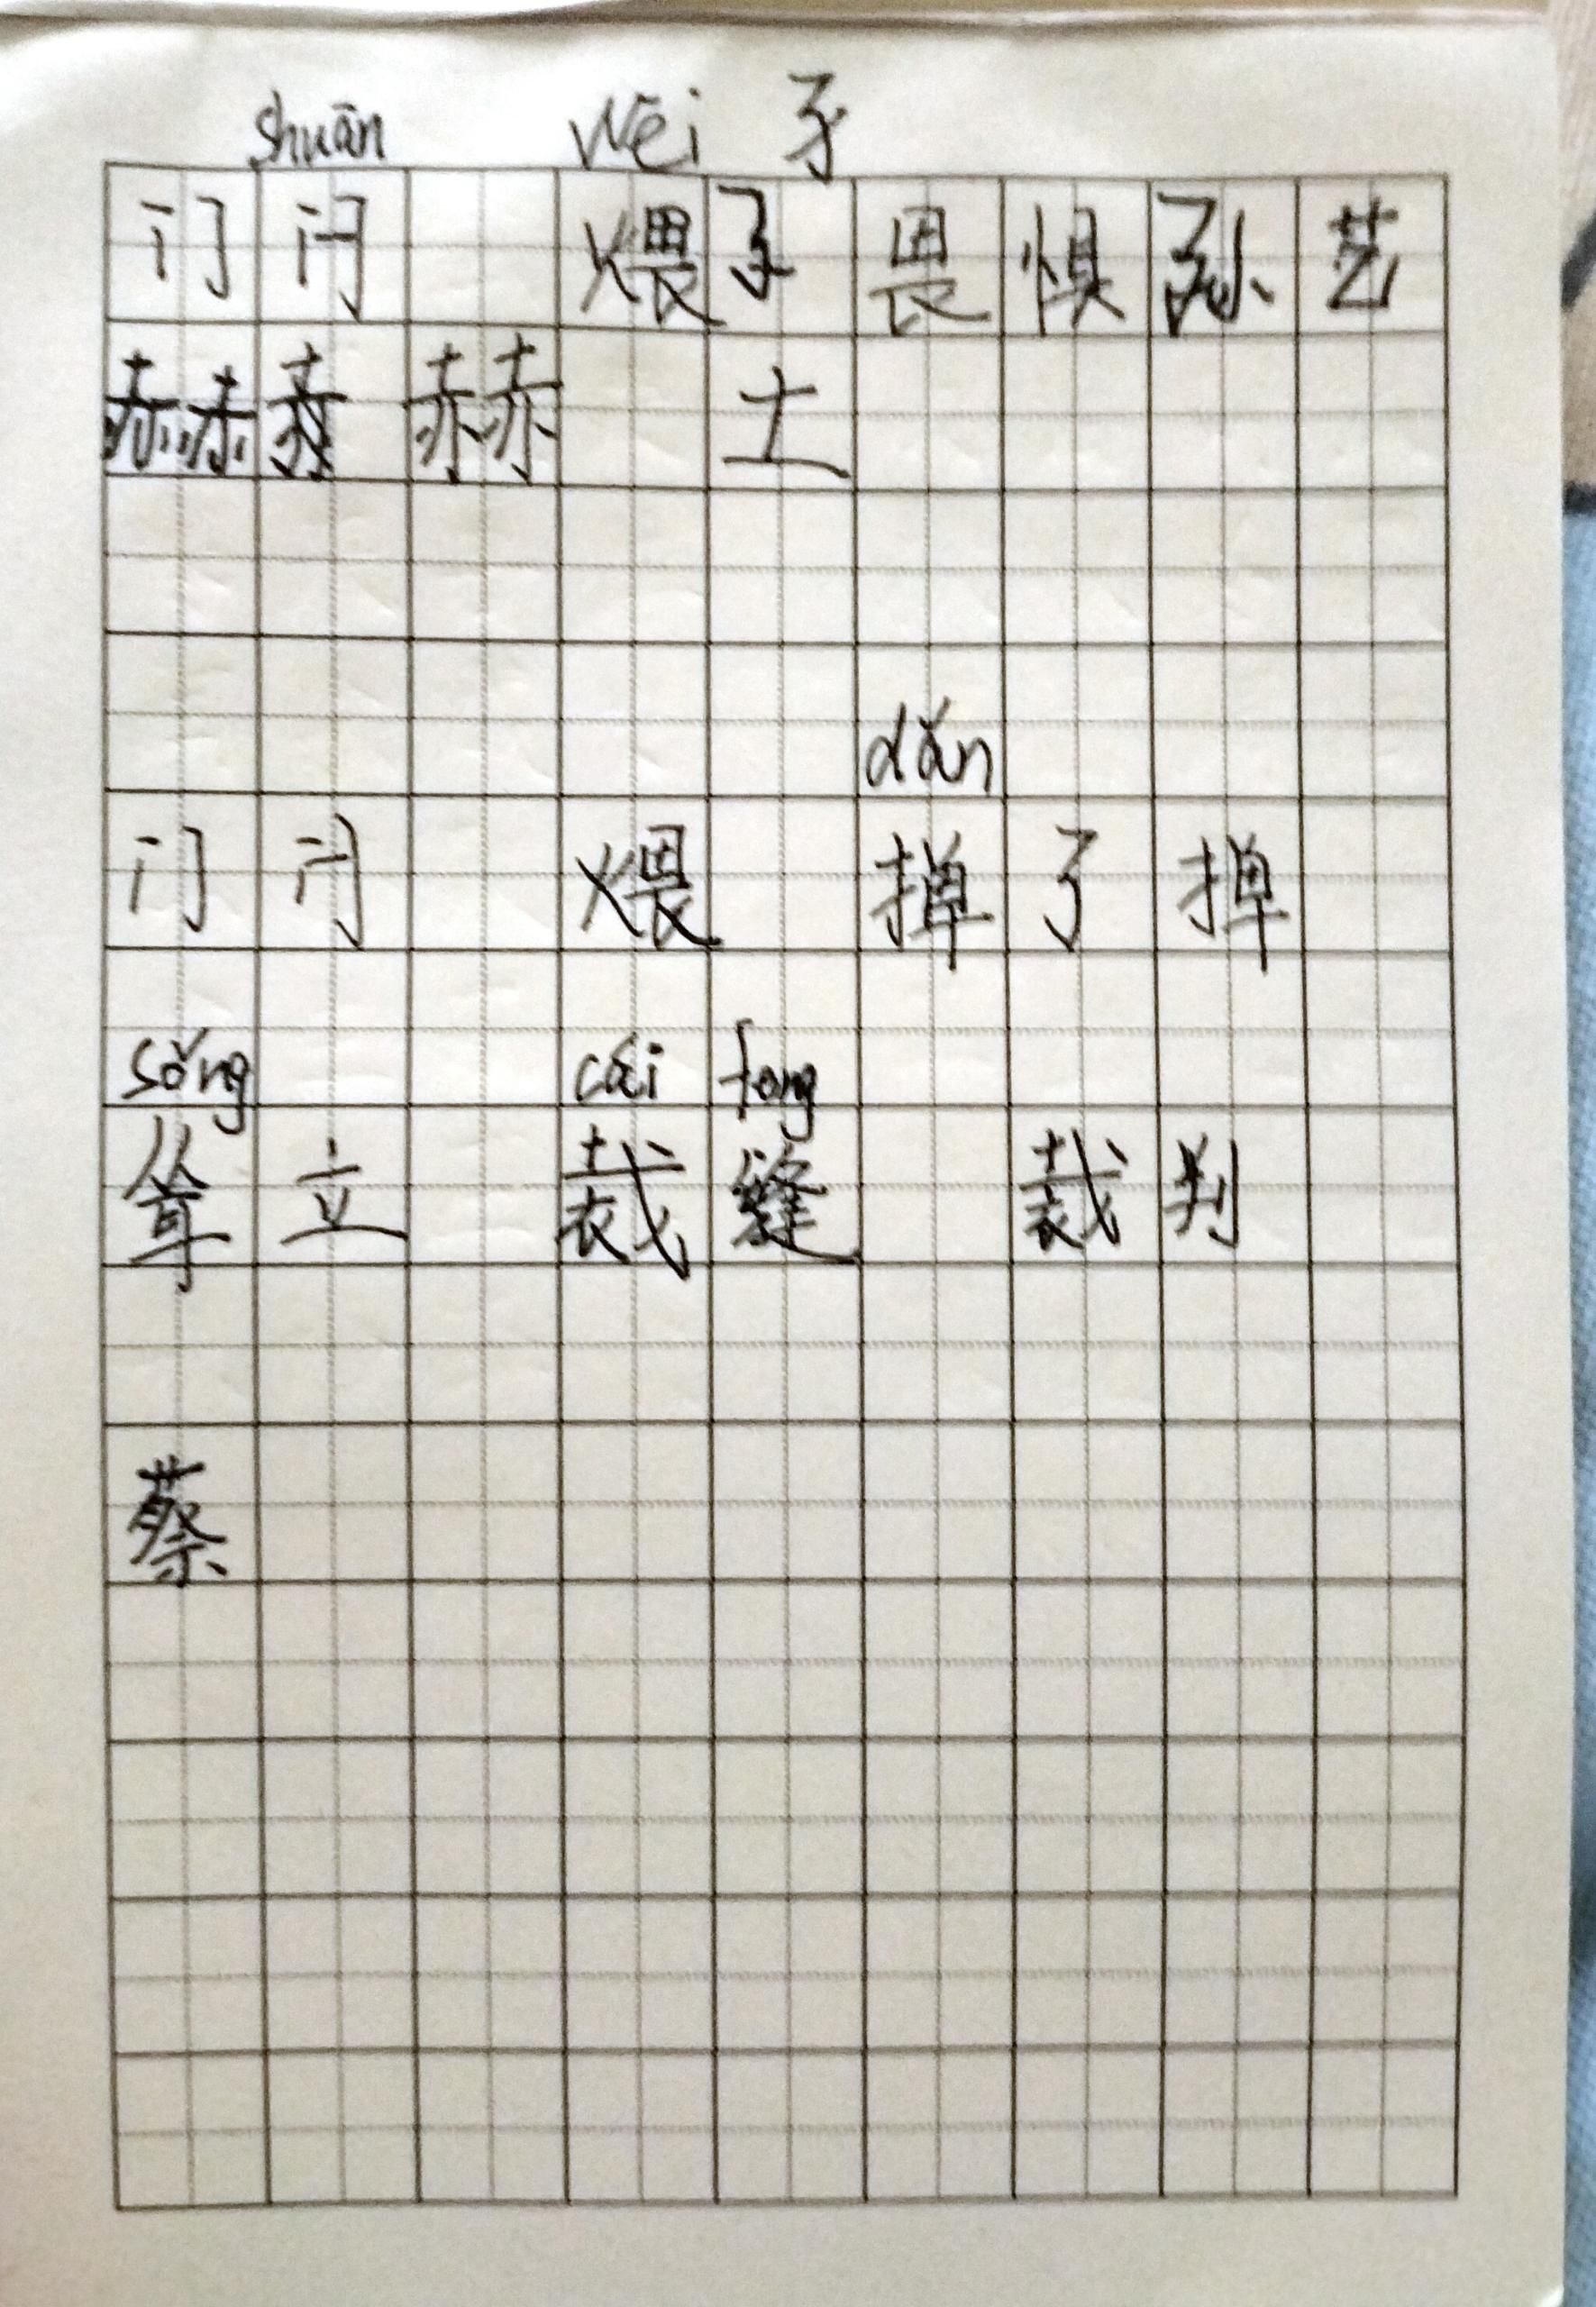 shuān wēi 孑
门 闩 煨 孑 畏 惧 孙 艺
赫 赤 赫 土
dǎn
门 闩 煨 掸 了 掸
sǒng cái feng
耸 立 裁 缝 裁 判
蔡